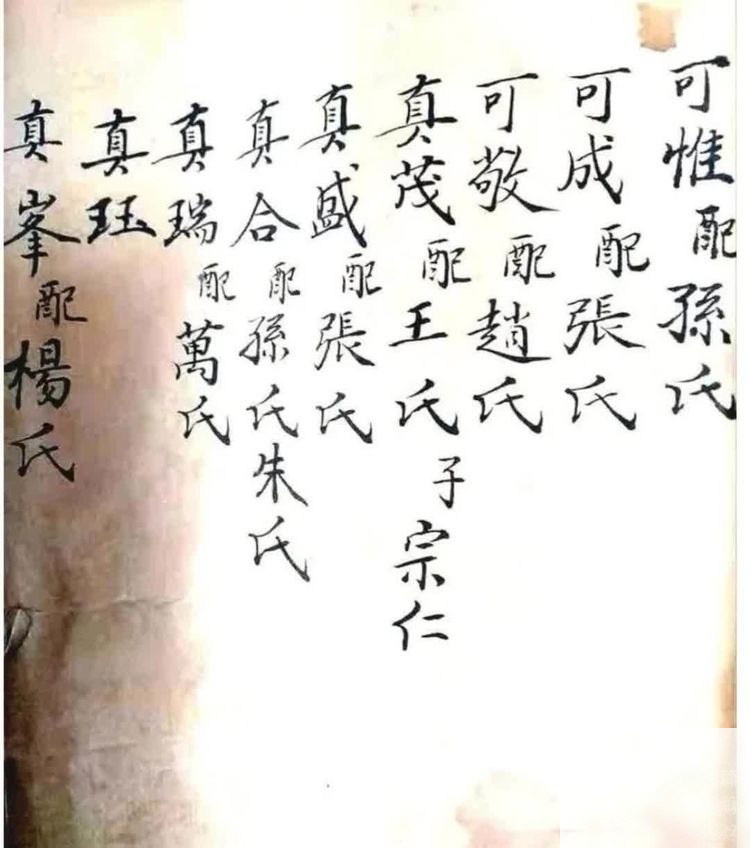 可惟配孫氏
可成配張氏
可敬配趙氏
真茂配王氏子宗仁
真盛配張氏
真合配孫氏朱氏
真瑞配萬氏
真珏
真峯配楊氏